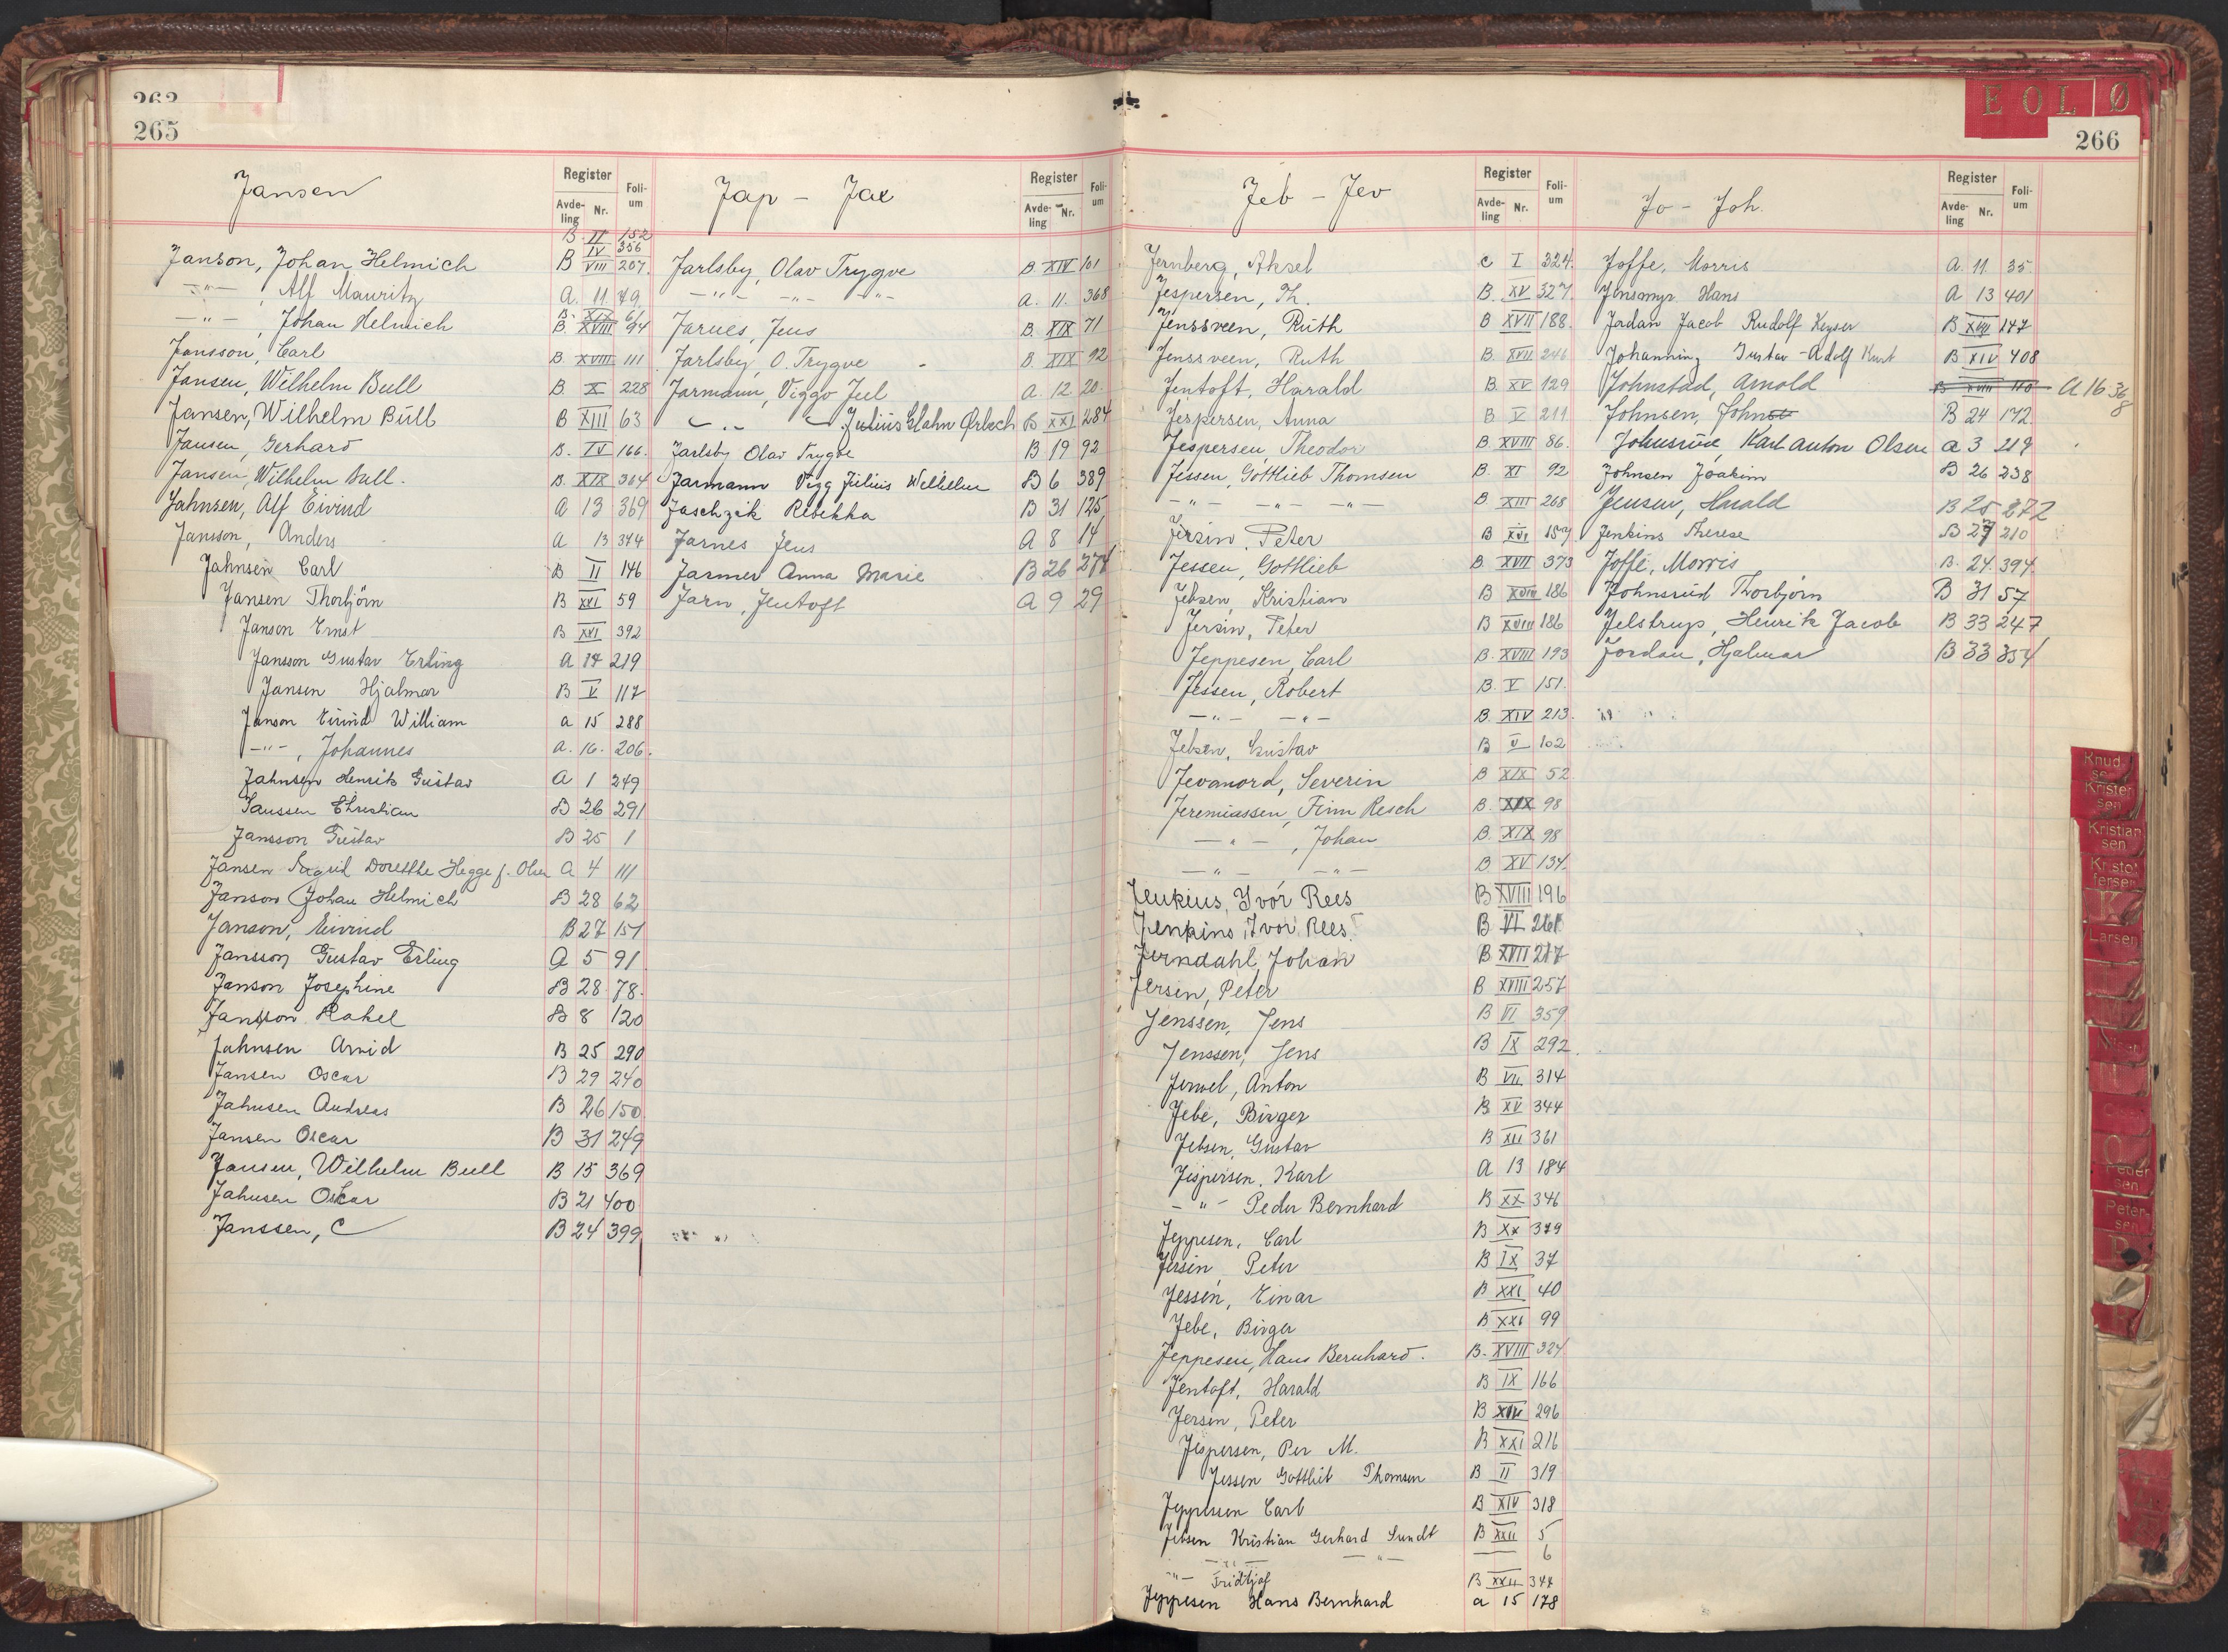 263
265
Jansen
Register
Avde-
ling
Nr.
Foli-
um
B. II 152
B IV 356
Janson, Johan Helmich B VIII 207.
-"- , Alf Mauritz A. 11. 49.
B. XIX 61
-"- , Johan Helmich B. XVIII 94
Jansson, Carl B. XVIII 111
Jansen, Wilhelm Bull B. X 228
Jansen, Wilhelm Bull B XIII 63
Jansen, Gerhard B. IV 166.
Jansen, Wilhelm Bull. B. XIX 364
Jahnsen, Alf Eivind A 13 369
Jansson, Anders A 13 374
Jahnsen Carl B II 146
Jansen Thorbjörn B XVI 59
Janson Ernst B XVI 392
Jansson Gustav Erling A 14 219
Jansen Hjalmar B V 117
Janson Eivind William a 15 288
-"- , Johannes a. 16. 206.
Jahnsen Henrik Gustav A 1 249
Janssen Christian B 26 291
Jansson Gustav B 25 1
Jansen Sigrid Dorethe Hegge f. Olsen A 4 111
Janson Johan Helmich B 28 62
Janson, Eivind B 27 151
Jansson Gustav Erling A 5 91
Janson Josephine B 28 78.
Jansson Rakel B 8 120
Jahnsen Arvid B 25 290
Jansen Oscar B 29 240
Jahnsen Andreas B 26 150
Jansen Oscar B 31 249
Jansen, Wilhelm Bull B 15 369
Jahnsen Oskar B 21 400
Janssen, C B 24 399
Jap - Jae
Register
Avde-
ling
Nr.
Foli-
um
Jarlsby, Olav Trygve B. XIV 101
-"- -"- -"- A. 11. 368
Jarnes, Jens B. XIX 71
Jarlsby, O. Trygve - B. XIX 92
Jarmann, Viggo Juel A. 12. 20.
-"- Julius Glahn Ørbech B XXI 284
Jarlsby Olav Trygve B 19 92
Jarmann Vigg Julius Wilhelm B 6 389
Jaschzik Rebekka B 31 125
Jarnes Jens A 8 14
Jarmer Anna Marie B 26 274
Jarn, Jentoft A 9 29
E O L Ø
266
Jeb - Jev
Register
Avde-
ling
Nr.
Foli-
um
Jernberg, Aksel C I 324.
Jespersen, Th. B. XV 327.
Jenssveen, Ruth B XVII 188.
Jenssveen, Ruth B. XVII 246
Jentoft, Harald B. XV 129
Jespersen, Anna B V 211
Jespersen, Theodor B. XVIII 86.
Jessen, Gottlieb Thomsen B. XI 92
-"- -"- -"- B XIII 268
Jersin, Peter B XVI 157
Jessen, Gottlieb B. XVII 373
Jebsen, Kristian B XVIII 186
Jersin, Peter B XVIII 186
Jeppesen, Carl B. XVIII 193
Jessen, Robert B. V 151.
-"- -"- B. XIV 213.
Jebsen, Gustav B V 102
Jevanord, Severin B XIX 52
Jeremiassen, Finn Resch B. XIX 98
-"- , Johan B. XIX 98
-"- -"- B XV 134.
Jenkins, Yvor Rees B XVIII 196
Jenkins, Ivor Rees. B VI 261
Jerndahl, Johan B XVII 217
Jersin, Peter B XVIII 257
Jenssen, Jens B VI 359
Jenssen, Jens B IX 292.
Jerwel, Anton B VII 314
Jebe, Birger B XV 344
Jebsen, Gustav B XII 361
Jespersen, Karl A 13 184
-"- Peder Bernhard B XX 346
Jeppesen, Carl B XX 379
Jersin Peter B IX 37
Jessen, Einar B XXI 40
Jebe, Birger B XXI 99
Jeppesen, Hans Bernhard. B. XVIII 324
Jentoft, Harald B IX 166
Jersin, Peter B XIV 296
Jespersen, Per M. B XXI 216
Jessen Gottlieb Thomsen B II 319
Jeppesen Carl B XIV 318
Jebsen Kristian Gerhard Sundt B XXII 5
-"- -"- 6
-"- Fridtjof B XXII 344
Jeppesen Hans Bernhard a 15 178
Jo - Joh.
Register
Avde-
ling
Nr.
Foli-
um
Joffe, Morris A. 11. 35.
Jensmyr Hans A 13 401
Jadan Jacob Rudolf Keyser B XVII 147
Johanning Gustav-Adolf Kurt B XIV 408
Johnstad, Arnold B XVIII 110 A 16 368
Johnsen, John B 24 172.
Johnsrud Karl Anton Olsen a 3 219
Johnsen Joakim B 26 238
Jensen, Harald B 25 272
Jenkins Therese B 27 210
Joffe, Morris B. 24. 394.
Johnsrud Thorbjörn B 31 57
Jelstrup, Henrik Jacob B 33 247
Jordan, Hjalmar B 33 354
Knud-
se
Krister
sen
Kristian
sen
Kristof
fersen
K
Larsen
Peder
sen
Peter-
sen